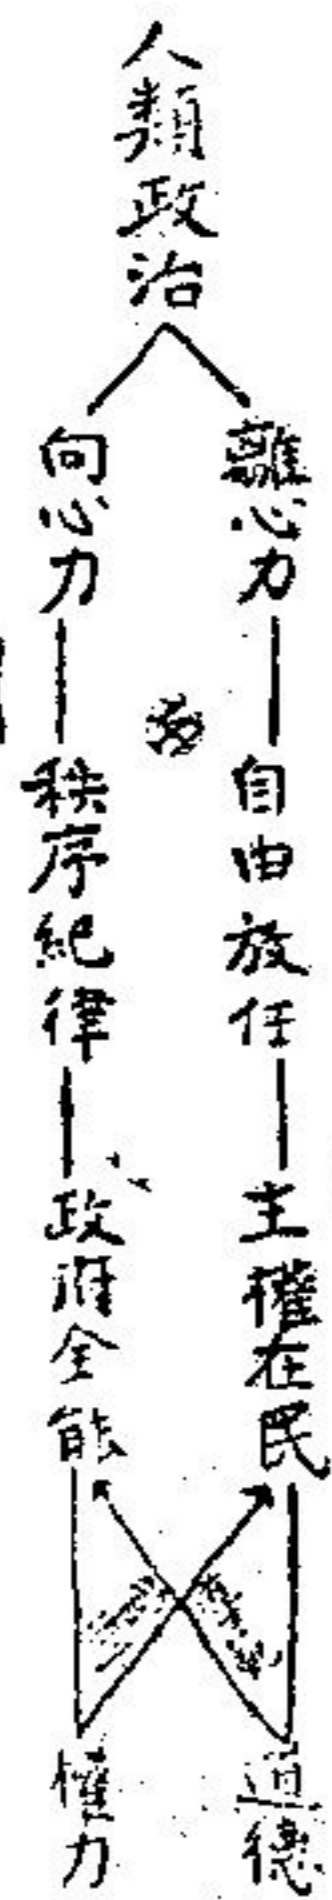 人類政治
離心力
自由放任
主權在民
道德
向心力
秩序紀律
政府全能
權力